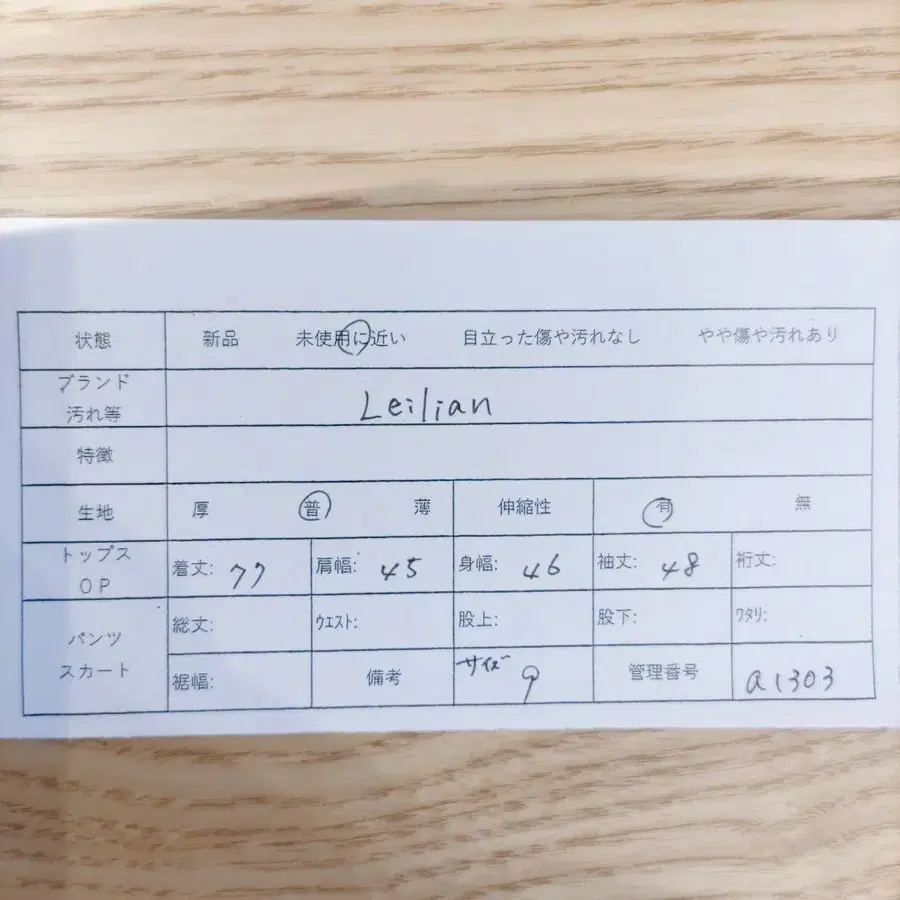 状態 新品 未使用に近い 目立った傷や汚れなし やや傷や汚れあり
ブランド
汚れ等 Leilian
特徴
生地 厚 普 薄 伸縮性 有 無
トップス
OP 着丈: 77 肩幅: 45 身幅: 46 袖丈: 48 裄丈:
パンツ
スカート
総丈: ウエスト: 股上: 股下: ワタリ:
裾幅: 備考 サイズ 9 管理番号 a1303